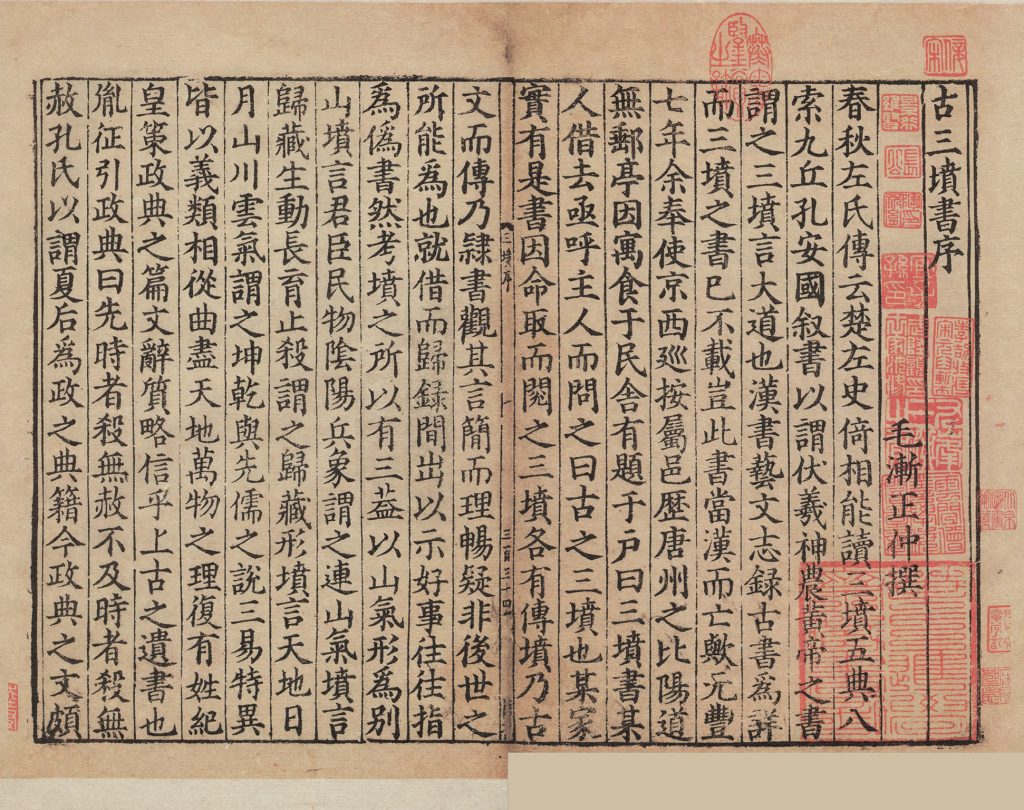 古三墳書序
毛漸正仲撰
春秋左氏傳云楚左史倚相能讀三墳五典八
索九丘孔安國叙書以謂伏羲神農黄帝之書
謂之三墳言大道也漢書藝文志録古書爲詳
而三墳之書已不載豈此書當漢而亡歟元豐
七年余奉使京西廵按屬邑歷唐州之比陽道
無郵亭因寓食于民舍有題于户曰三墳書某
人借去亟呼主人而問之曰古之三墳也某家
實有是書因命取而閲之三墳各有傳墳乃古
三墳序
三百三十四
文而傳乃隸書觀其言簡而理暢疑非後世之
所能為也就借而歸録間出以示好事往往指
為偽書然考墳之所以有三盖以山氣形為别
山墳言君臣民物陰陽兵象謂之連山氣墳言
歸藏生動長育止殺謂之歸藏形墳言天地日
月山川雲氣謂之坤乾與先儒之說三易特異
皆以義類相從曲盡天地萬物之理復有姓紀
皇策政典之篇文辭質略信乎上古之遺書也
胤征引政典曰先時者殺無赦不及時者殺無
赦孔氏以謂夏后爲政之典籍今政典之文頗